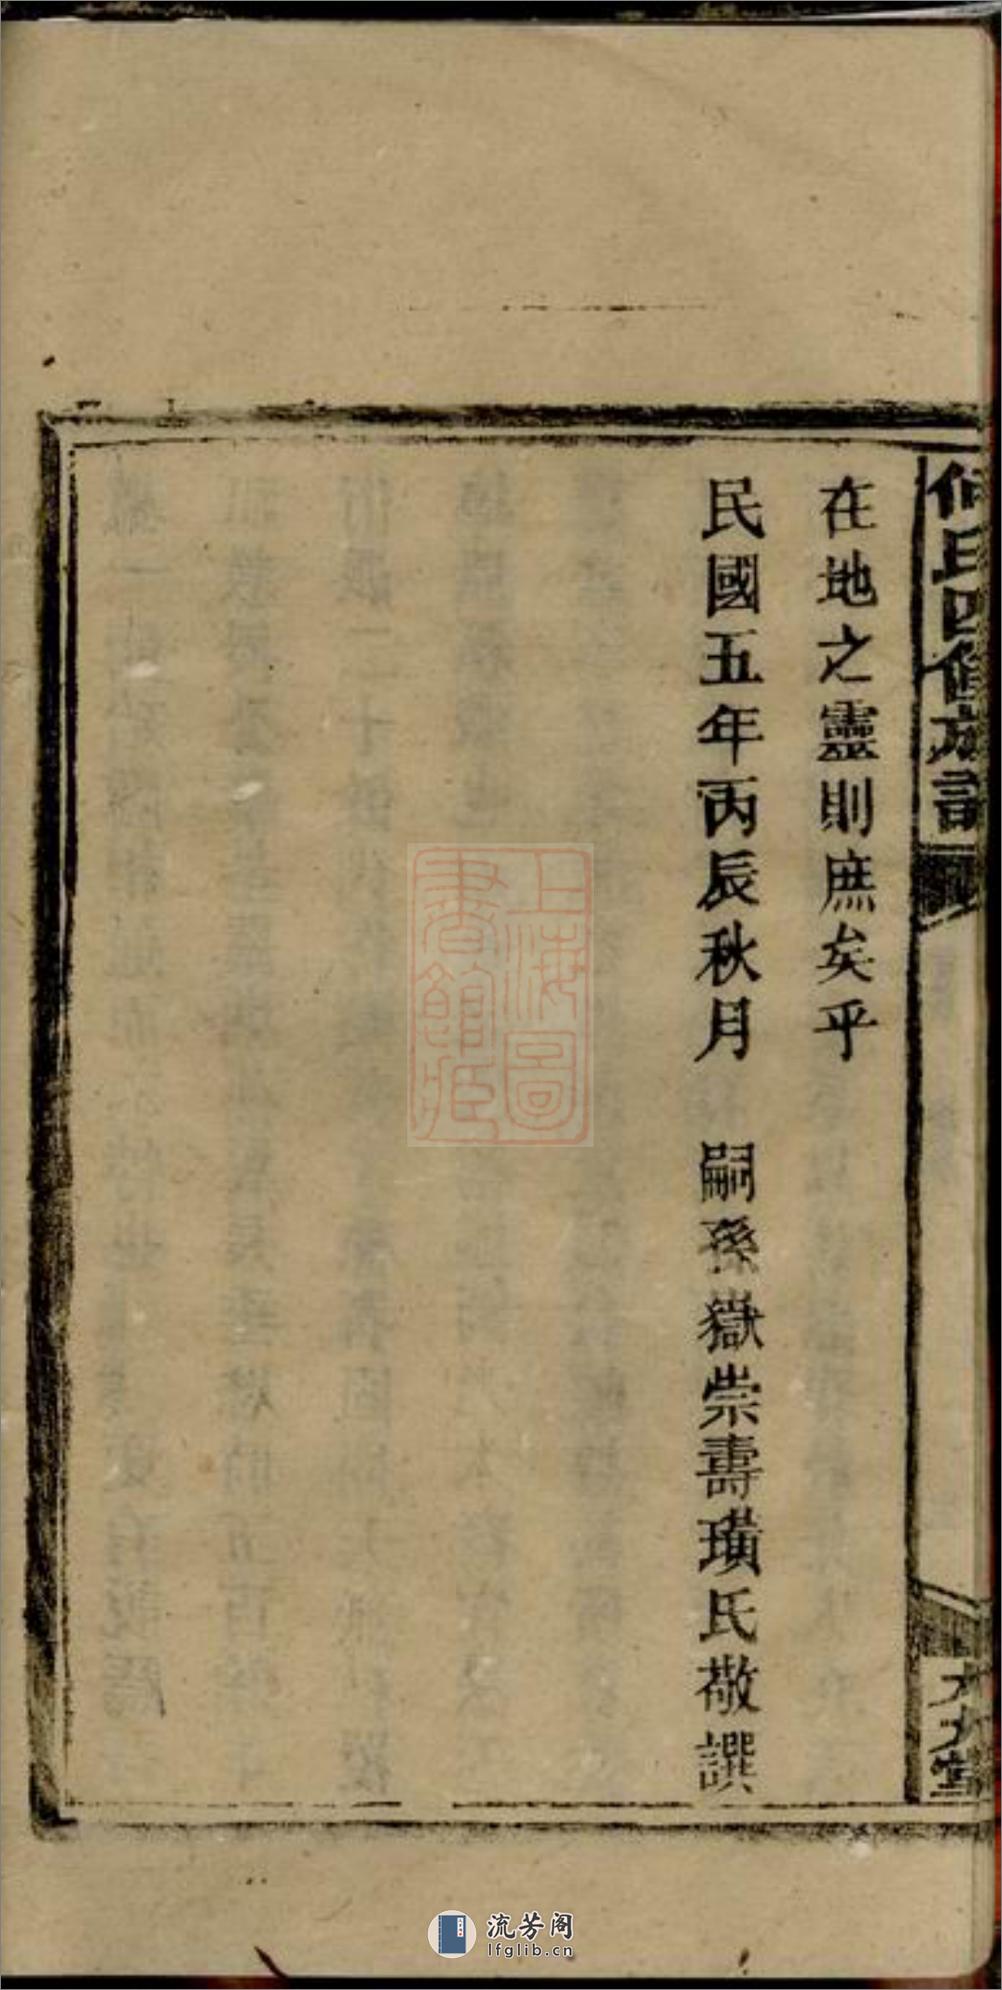 何氏四修族譜
在地之靈則庶矣乎
民國五年丙辰秋月　嗣孫嶽崇壽璜氏敬譔
上海圖
書館藏
流芳阁
lfglib.cn